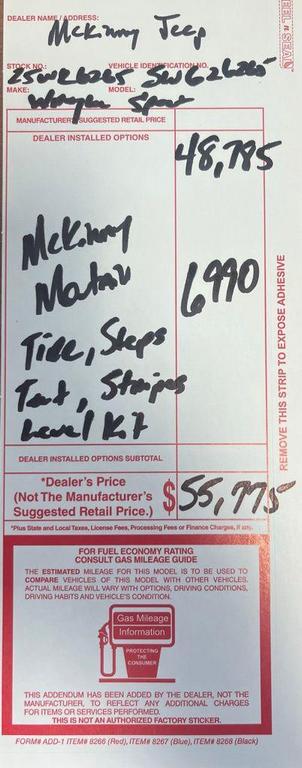 DEALER NAME / ADDRESS:
McKinny Jeep
STOCK NO.: VEHICLE IDENTIFICATION NO.
25WR6265 SW626265
MAKE: MODEL:
Wrangler Sport
MANUFACTURER'S SUGGESTED RETAIL PRICE
48,785
DEALER INSTALLED OPTIONS
McKinny
6990
Tire, Steps
Tent, Stripes
Level Kit
DEALER INSTALLED OPTIONS SUBTOTAL
*Dealer's Price
(Not The Manufacturer's
Suggested Retail Price.) $55,775
*Plus State and Local Taxes, License Fees, Processing Fees or Finance Charges, if any.
FOR FUEL ECONOMY RATING
CONSULT GAS MILEAGE GUIDE
THE ESTIMATED MILEAGE FOR THIS MODEL IS TO BE USED TO
COMPARE VEHICLES OF THIS MODEL WITH OTHER VEHICLES.
ACTUAL MILEAGE WILL VARY WITH OPTIONS, DRIVING CONDITIONS,
DRIVING HABITS AND VEHICLE'S CONDITION.
Gas Mileage
Information
PROTECTING
THE
CONSUMER
THIS ADDENDUM HAS BEEN ADDED BY THE DEALER, NOT THE
MANUFACTURER, TO REFLECT ANY ADDITIONAL CHARGES
FOR ITEMS OR SERVICES PERFORMED.
THIS IS NOT AN AUTHORIZED FACTORY STICKER.
FORM# ADD-1 ITEM# 8266 (Red), ITEM# 8267 (Blue), ITEM# 8268 (Black)
REMOVE THIS STRIP TO EXPOSE ADHESIVE